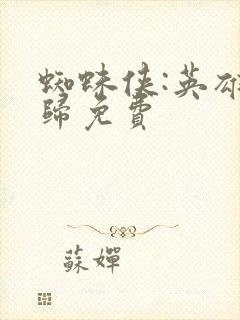 蜘蛛侠:英雄
歸免費
蘇嬋